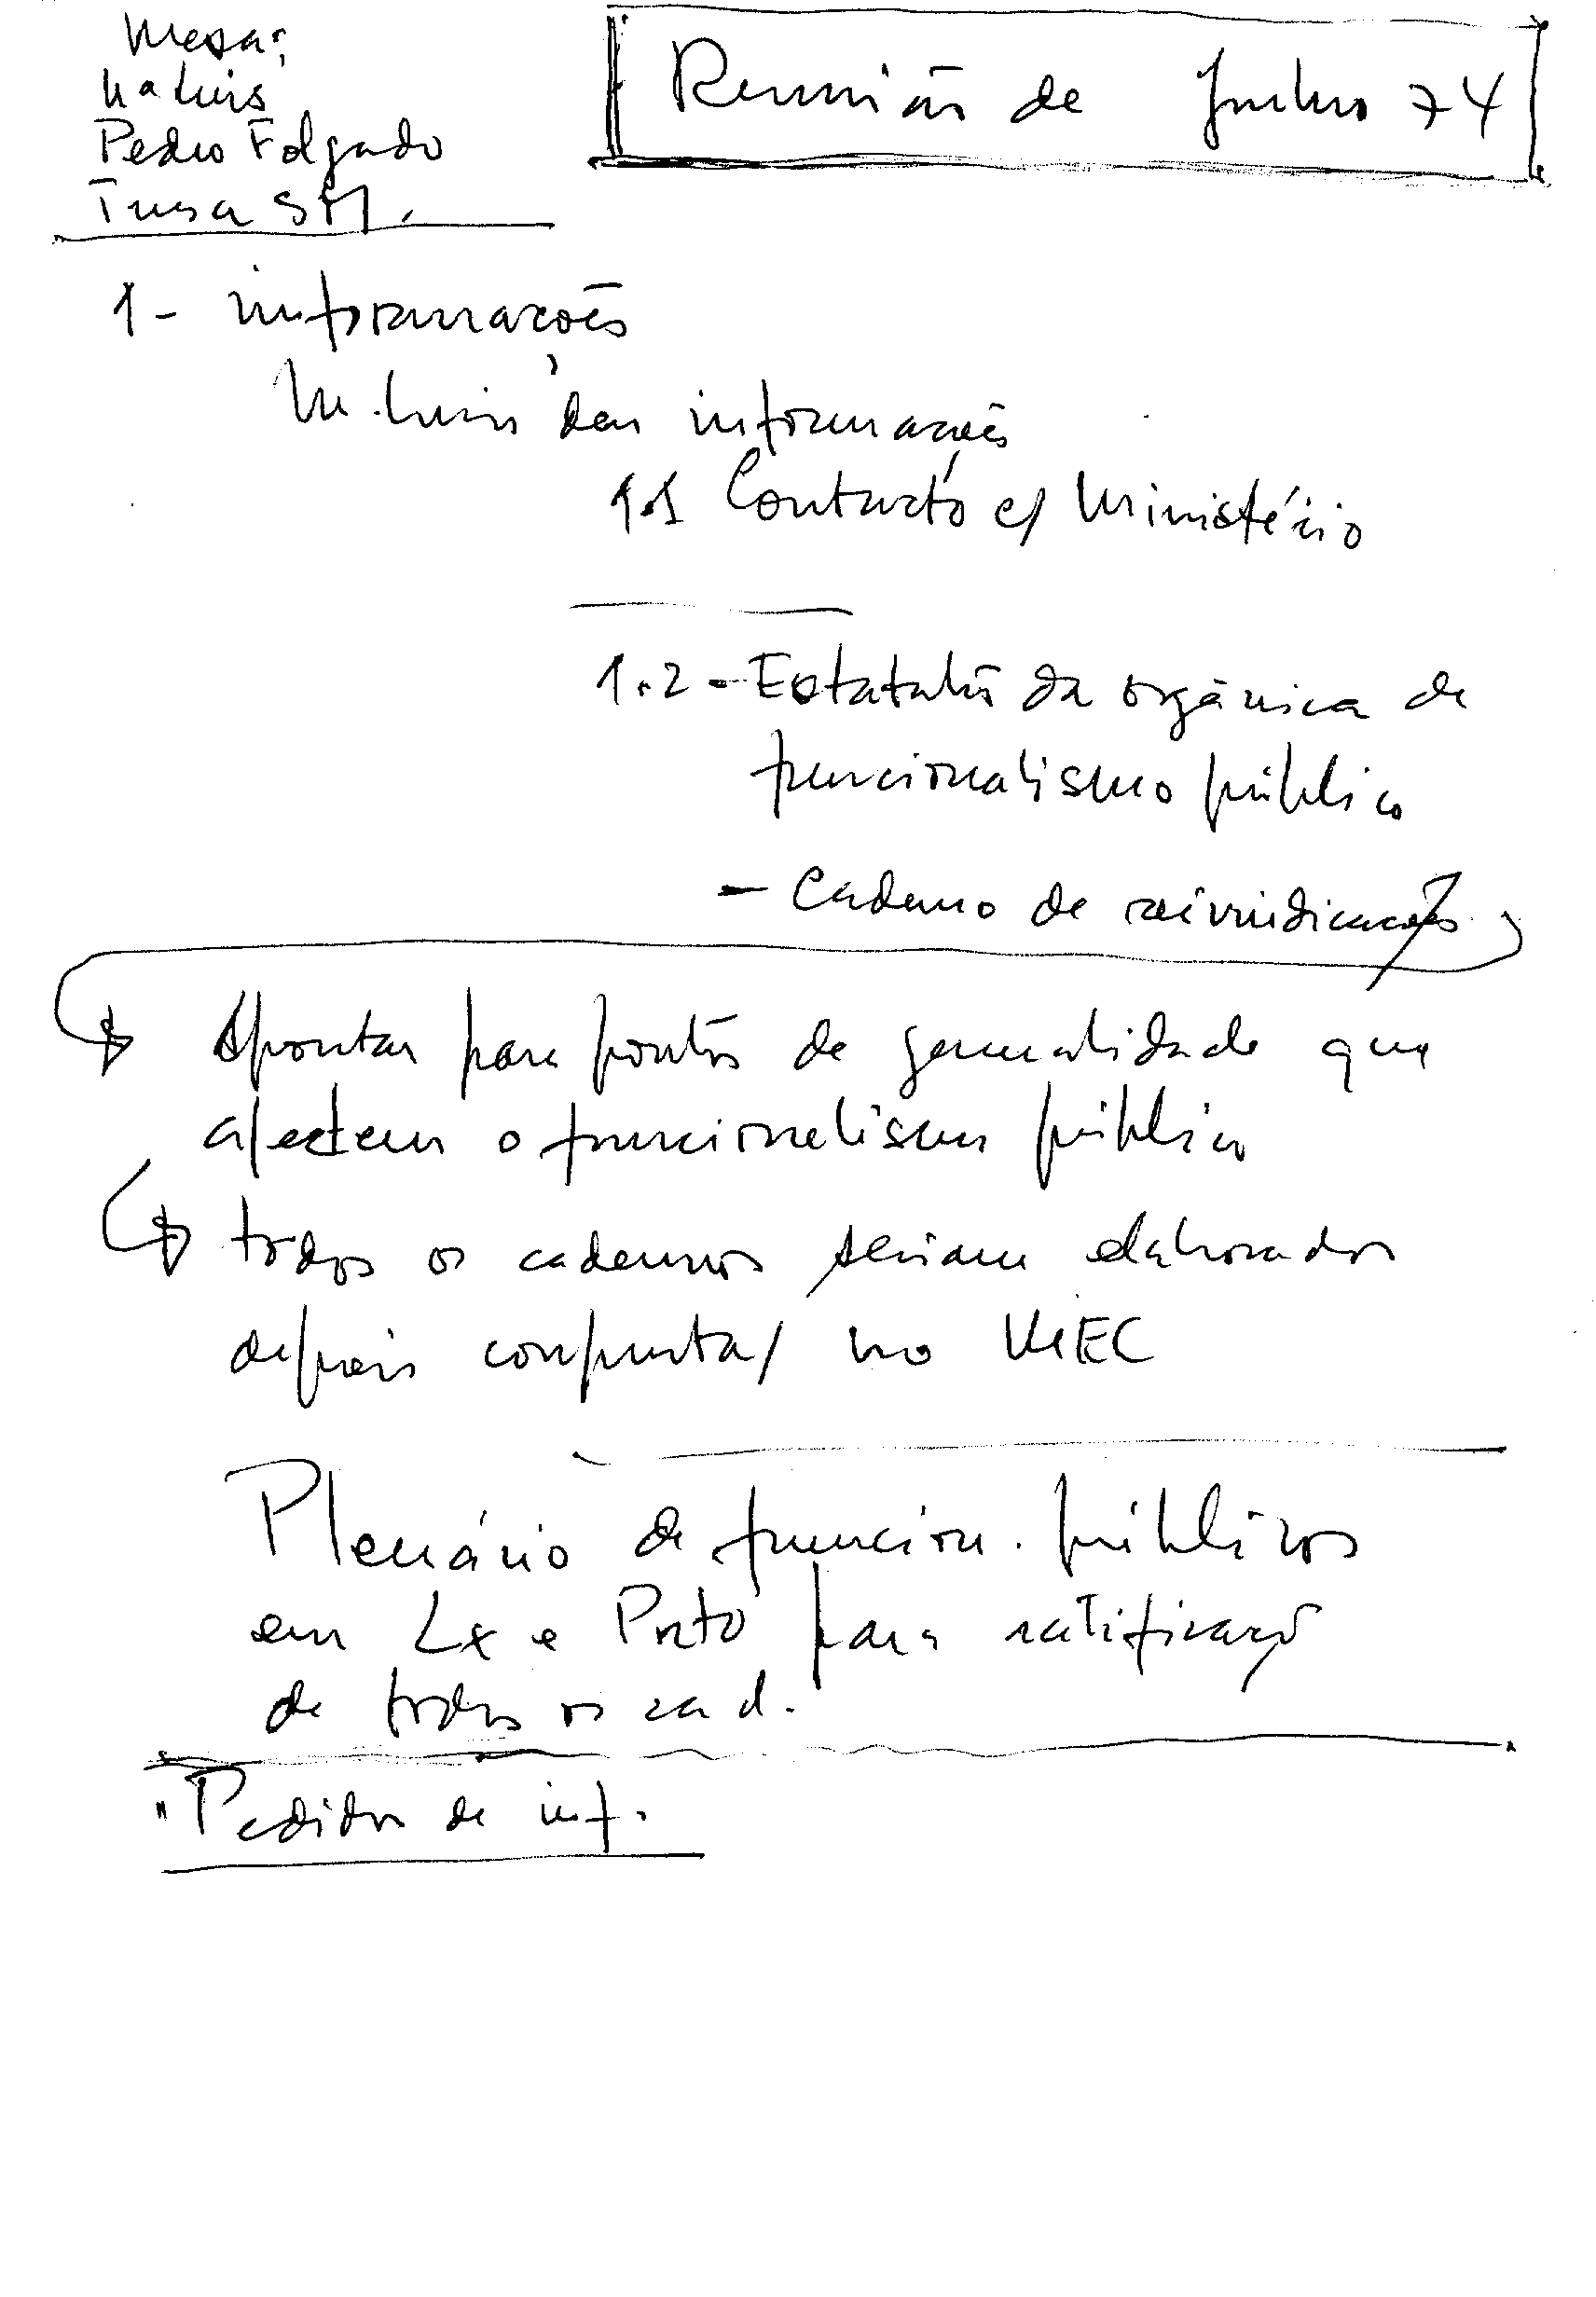 Mesa:
Mª Luis
Pedro Folgado
Teresa SM.
Reunião de Junho 74
1- informações
M. Luis deu informações
1.1 Contacto c/ Ministério
1.2 - Estatuto da orgânica de
funcionalismo público
- Caderno de reivindicações
Apontar para pontos de generalidade que
afectem o funcionalismo público
todos os cadernos seriam elaborados
depois conjunta/ no MEC
Plenário de funcion. públicos
em Lx e Porto para ratificação
de todos os cad.
"Pedidos de inf.